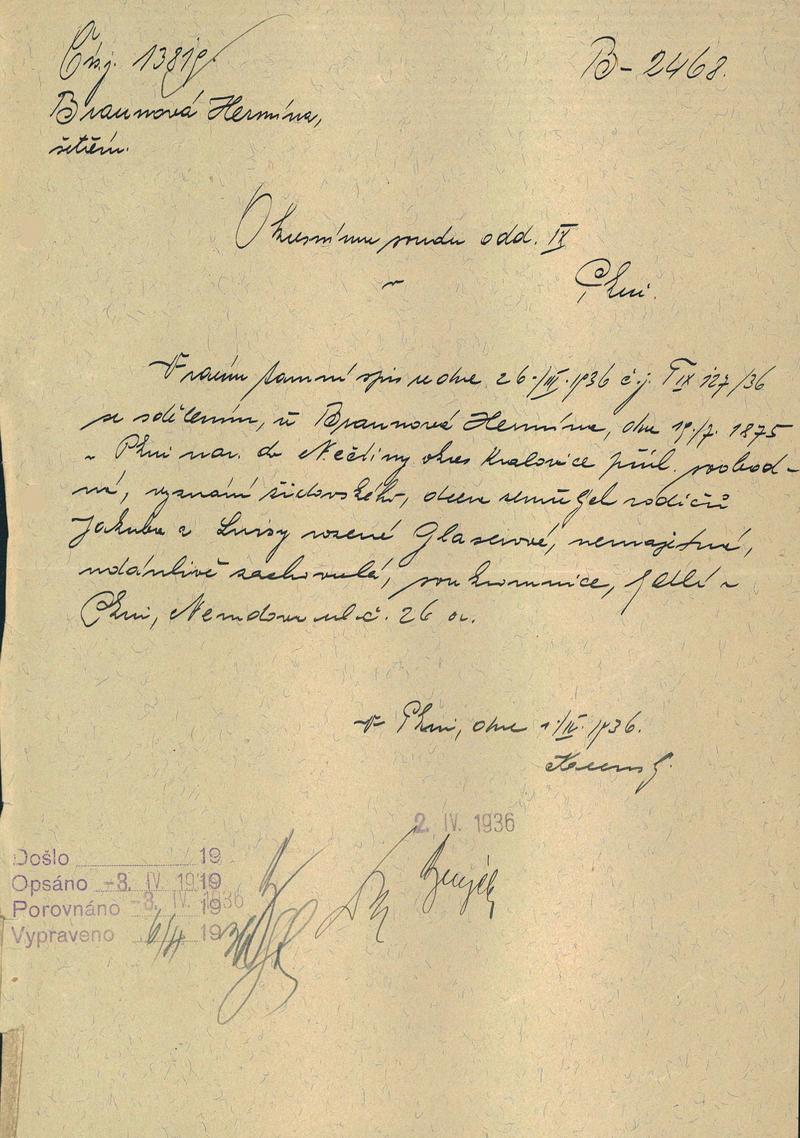 Čís.j. 13819 B-2468.
Braunová Hermína,
šetření.
Okresnímu soudu odd. IX
v Plzni.
Vracím tamní spis ze dne 26./III. 1936 č.j. T IX 127/36
se sdělením, že Braunová Hermína, dne 19./7. 1875
v Plzni nar. do Nečtiny okres Kralovice přísl. svobod-
ná, vyznání židovského, dcera zemřel. rodičů
Jakuba a Luisy rozené Glaserové, nemajetná,
zachovalá, soukromnice, bydlí v
Plzni, ul. č. 26 a.
V Plzni, dne 1./IV. 1936.
2. IV. 1936
Došlo 19
Opsáno -3. IV. 1936 19
Porovnáno -3. IV. 1936 19
Vypraveno 6/4 1936